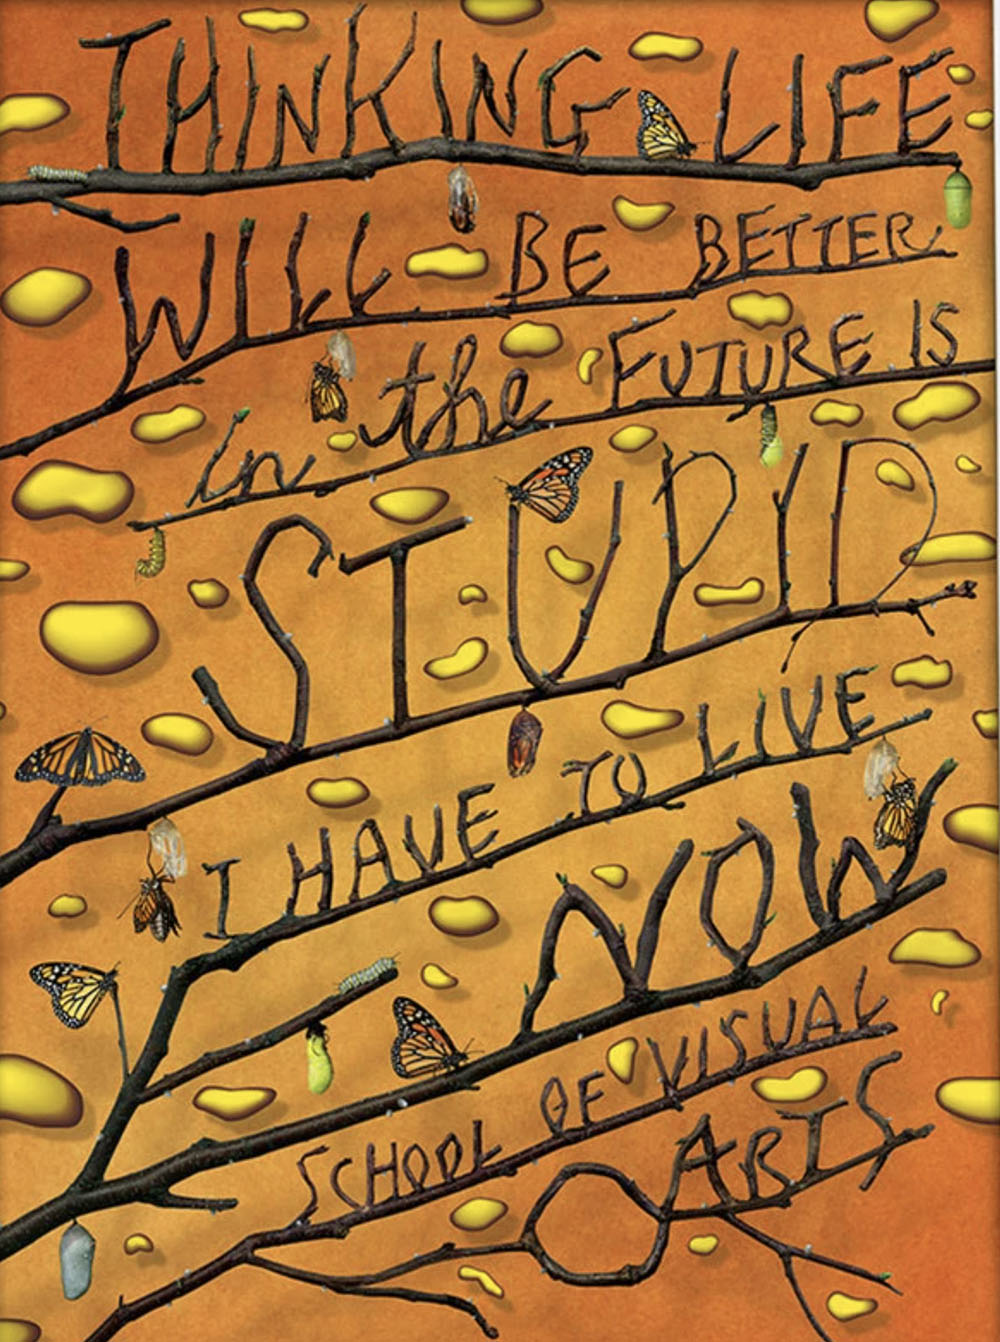 THINKING LIFE
WILL BE BETTER
in the FUTURE IS
STUPID
I HAVE TO LIVE
NOW
SCHOOL OF VISUAL
ARTS